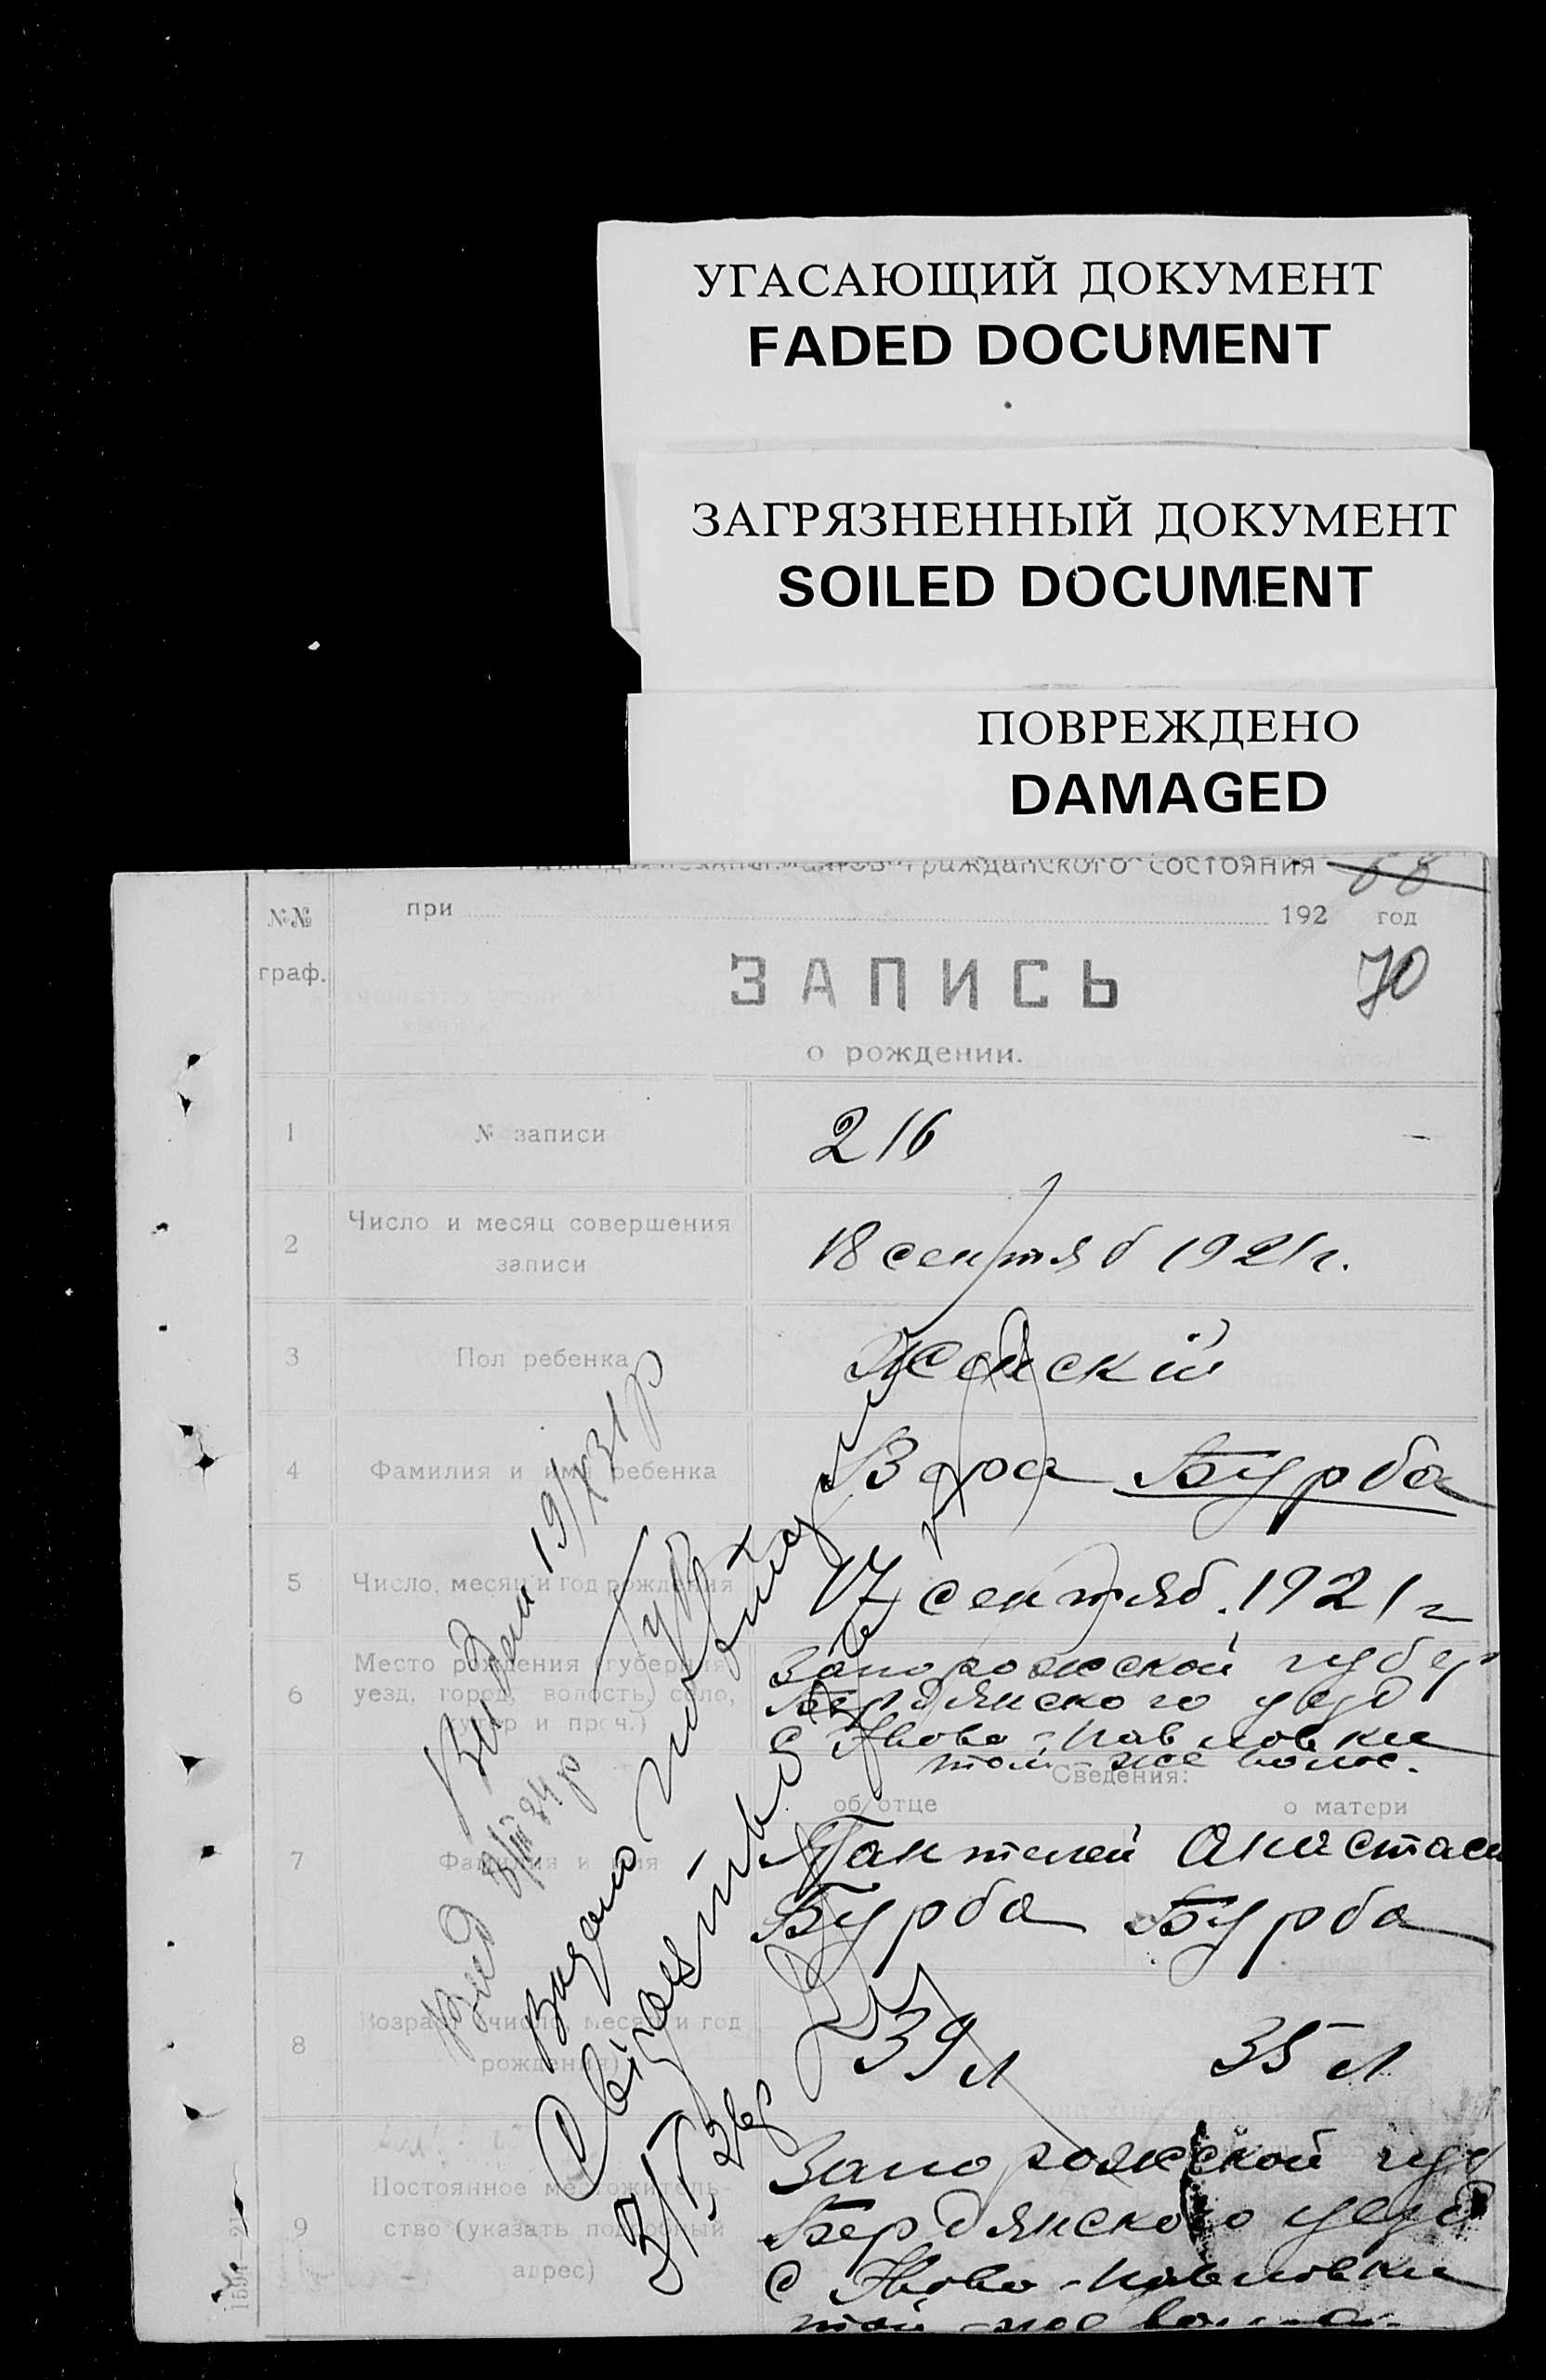 УГАСАЮЩИЙ ДОКУМЕНТ
FADED DOCUMENT
ЗАГРЯЗНЕННЫЙ ДОКУМЕНТ
SOILED DOCUMENT
ПОВРЕЖДЕНО
DAMAGED
гражданского состояния 68
№№ граф.
при 192 год
ЗАПИСЬ 70
о рождении.
1 № записи 216
2 Число и месяц совершения записи 18 сентяб 1921 г.
3 Пол ребенка Женскій
4 Фамилия и имя ребенка Вера Бурба
5 Число, месяц и год рождения 17 сентяб. 1921 г
6 Место рождения (губерния, уезд, город, волость, село, хутор и проч.)
Запорожской губер
Бердянского уезд
с Ново-Павловки
той-же волос.
Сведения:
об отце о матери
7 Фамилия и имя
Пантелей Анастаси
Бурба Бурба
8 Возраст (число, месяц и год рождения) 39 л 35 л
9 Постоянное местожительство (указать подробный адрес)
Запорожской губ
Бердянского уезд
с Ново-Павловки
той-же
19/X 31 р